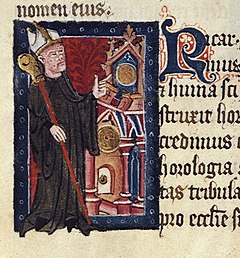 nomen eius:
Ricar
dinus
t huma sci
struxit hor
credimus i
horologia
tas tribula
pro eccle